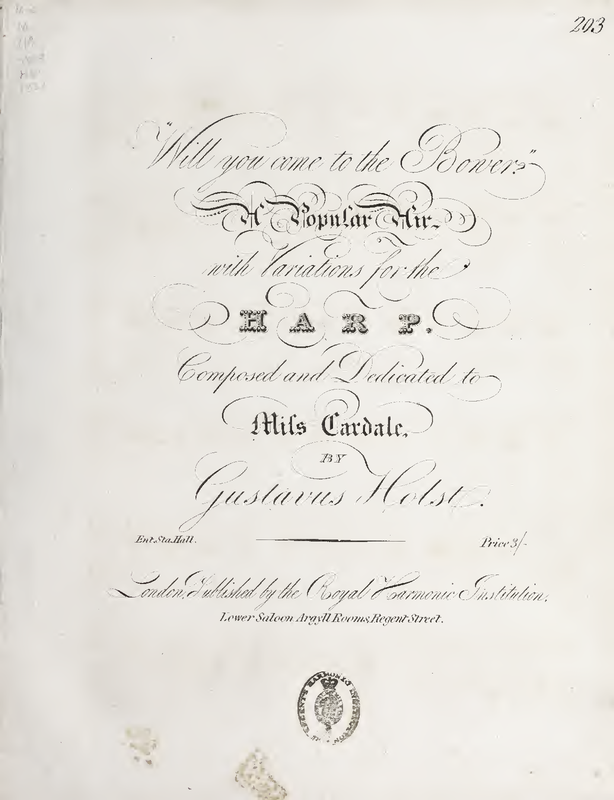 203
"Will you come to the Bower?"
A Popular Air,
with Variations for the
HARP.
Composed and Dedicated to
Miſs Cardale,
BY
Gustavus Holst.
Ent. Sta. Hall.
Price 3/-
London, Published by the Royal Harmonic Institution,
Lower Saloon Argyll Rooms, Regent Street.
REGENT'S HARMONIC INSTITUTION